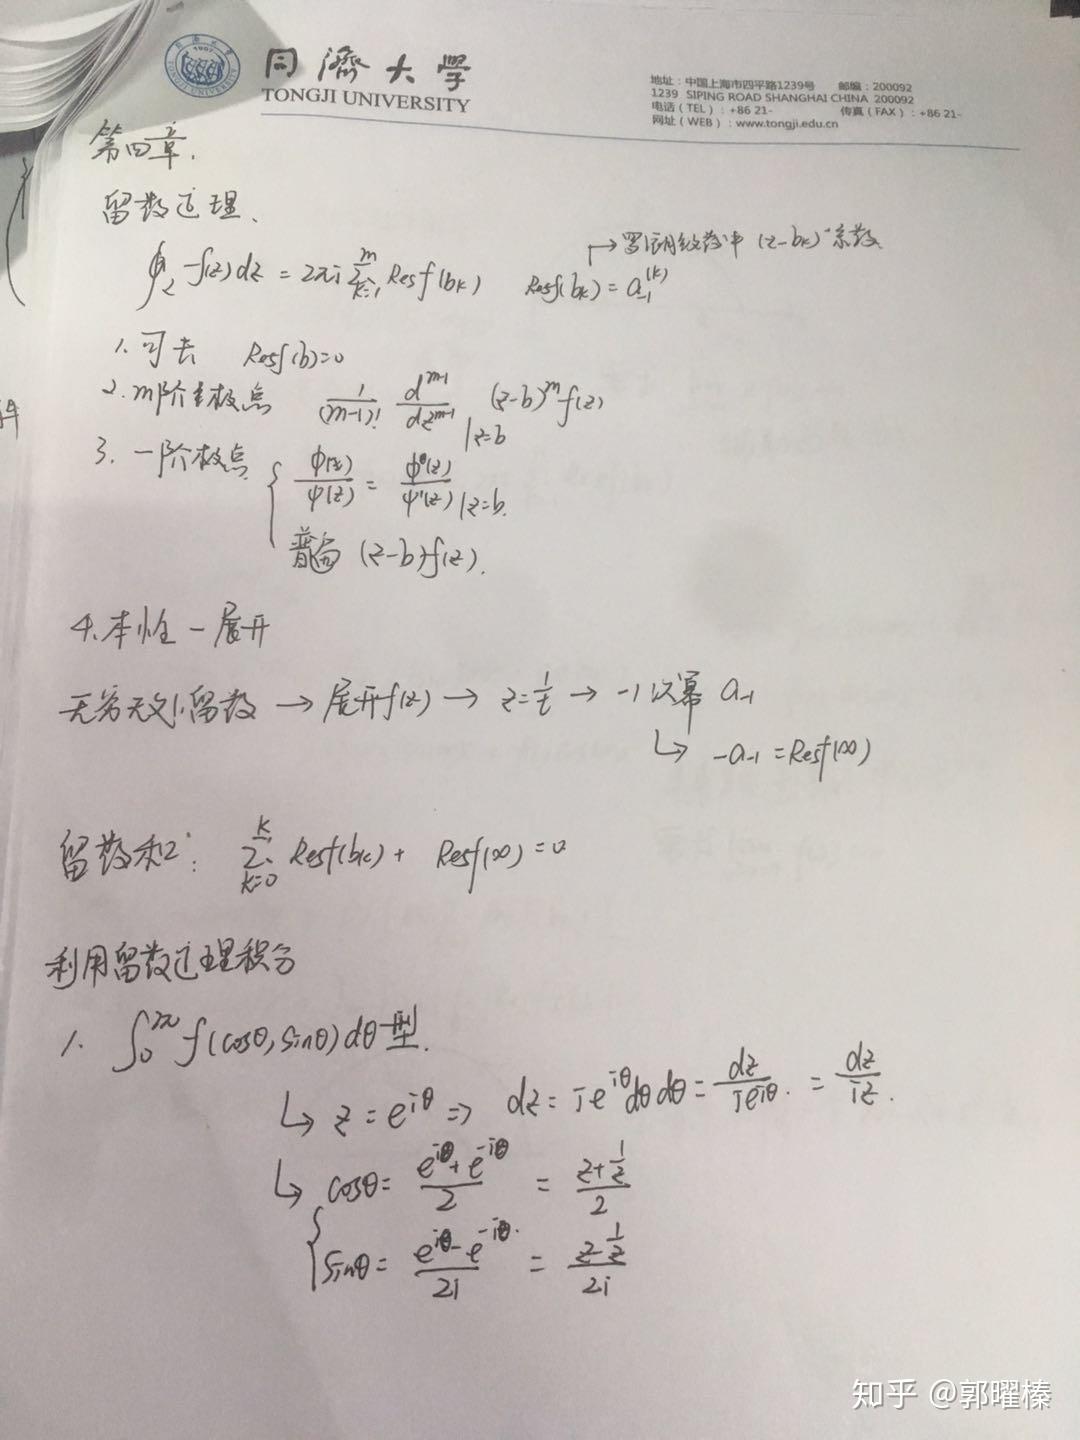 同濟大学
TONGJI UNIVERSITY
地址：中国上海市四平路1239号 邮编：200092
1239 SIPING ROAD SHANGHAI CHINA 200092
电话（TEL）：+86 21- 传真（FAX）：+86 21-
网址（WEB）：www.tongji.edu.cn
第四章.
留数定理、
→罗朗级数中 (z-bk)⁻¹系数
∮_L f(z)dz = 2πi Σ_{k=1}^{m} Resf(bk) Resf(bk) = a₋₁^(k)
1. 可去 Resf(b)=0
2. m阶极点 1/(m-1)! d^{m-1}/dz^{m-1} (z-b)^m f(z) |z=b
3. 一阶极点 { φ(z)/ψ(z) = φ(z)/ψ'(z) |z=b.
普遍 (z-b)f(z).
4. 本性 - 展开
无穷远留数 → 展开f(z) → z=1/t → -1次幂 a₋₁
↳ -a₋₁ = Resf(∞)
留数和: Σ_{k=0}^{K} Resf(bk) + Resf(∞) = 0
利用留数定理积分
1. ∫₀^{2π} f(cosθ, sinθ)dθ型.
↳ z = e^{iθ} => dz = ie^{iθ}dθ dθ = dz/ie^{iθ}. = dz/iz.
↳ cosθ = (e^{iθ}+e^{-iθ})/2 = (z+1/z)/2
{ sinθ = (e^{iθ}-e^{-iθ})/2i = (z-1/z)/2i
知乎 @郭曜榛